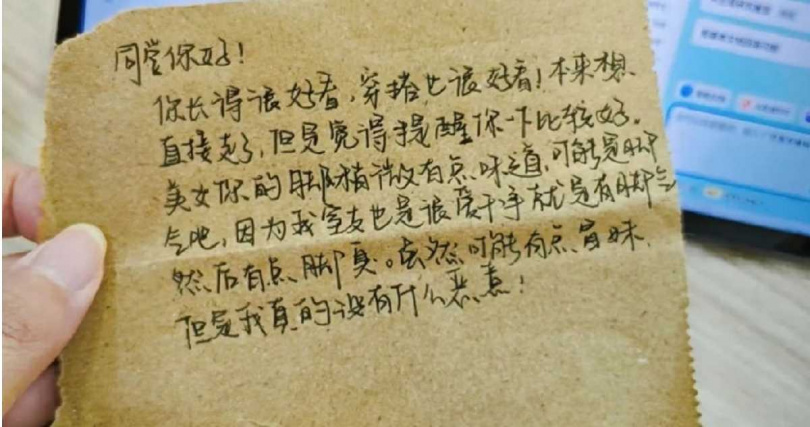 同学你好！
你长得很好看，穿搭也很好看！本来想
直接走了，但是觉得提醒你一下比较好。
美女你的脚稍微有点味道，可能是脚
气吧，因为我室友也是很爱干净就是有脚气
然后有点脚臭。虽然可能有点冒昧，
但是我真的没有什么恶意！